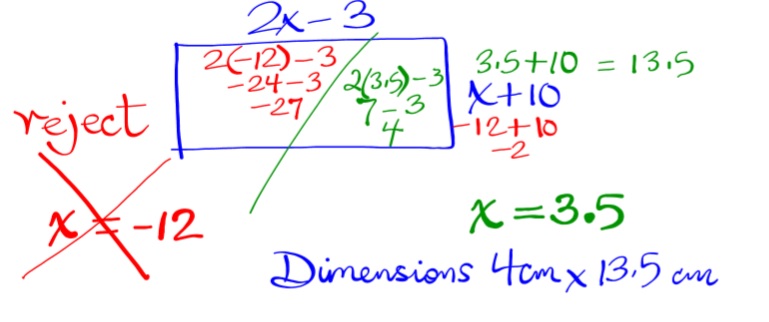 2x - 3
2(-12) - 3
-24 - 3
-27
2(3.5) - 3
7 - 3
4
3.5 + 10 = 13.5
x + 10
-12 + 10
-2
reject
x = -12
x = 3.5
Dimensions 4cm x 13.5 cm